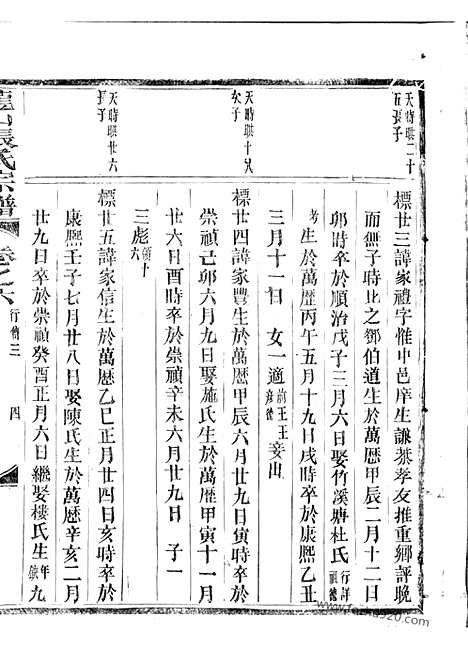 天時琪二十
五長子
標世三諱家禮字惟中邑庠生謙恭孝友推重鄉評晚
而無子時比之鄧伯道生於萬曆甲辰二月十二日
卯時卒於順治戊子三月六日娶竹溪塘杜氏行詳
生於萬歷丙午五月十九日戌時卒於康熙乙丑
三月十一日 女一適前王王 妾出
天時琪十八
次子
標廿四諱家豐生於萬歷甲辰六月廿九日寅時卒於
崇禎己卯六月九日娶施氏生於萬歷甲寅十一月
廿六日酉時卒於崇禎辛未六月廿九日 子一
三彪
天時琪廿六
長子
標廿五諱家信生於萬歷乙巳正月廿四日亥時卒於
康熙壬子七月廿八日娶陳氏生於萬歷辛亥二月
廿九日卒於崇禎癸酉正月六日繼娶樓氏生年九
張氏宗譜
卷之六
行傳三
四